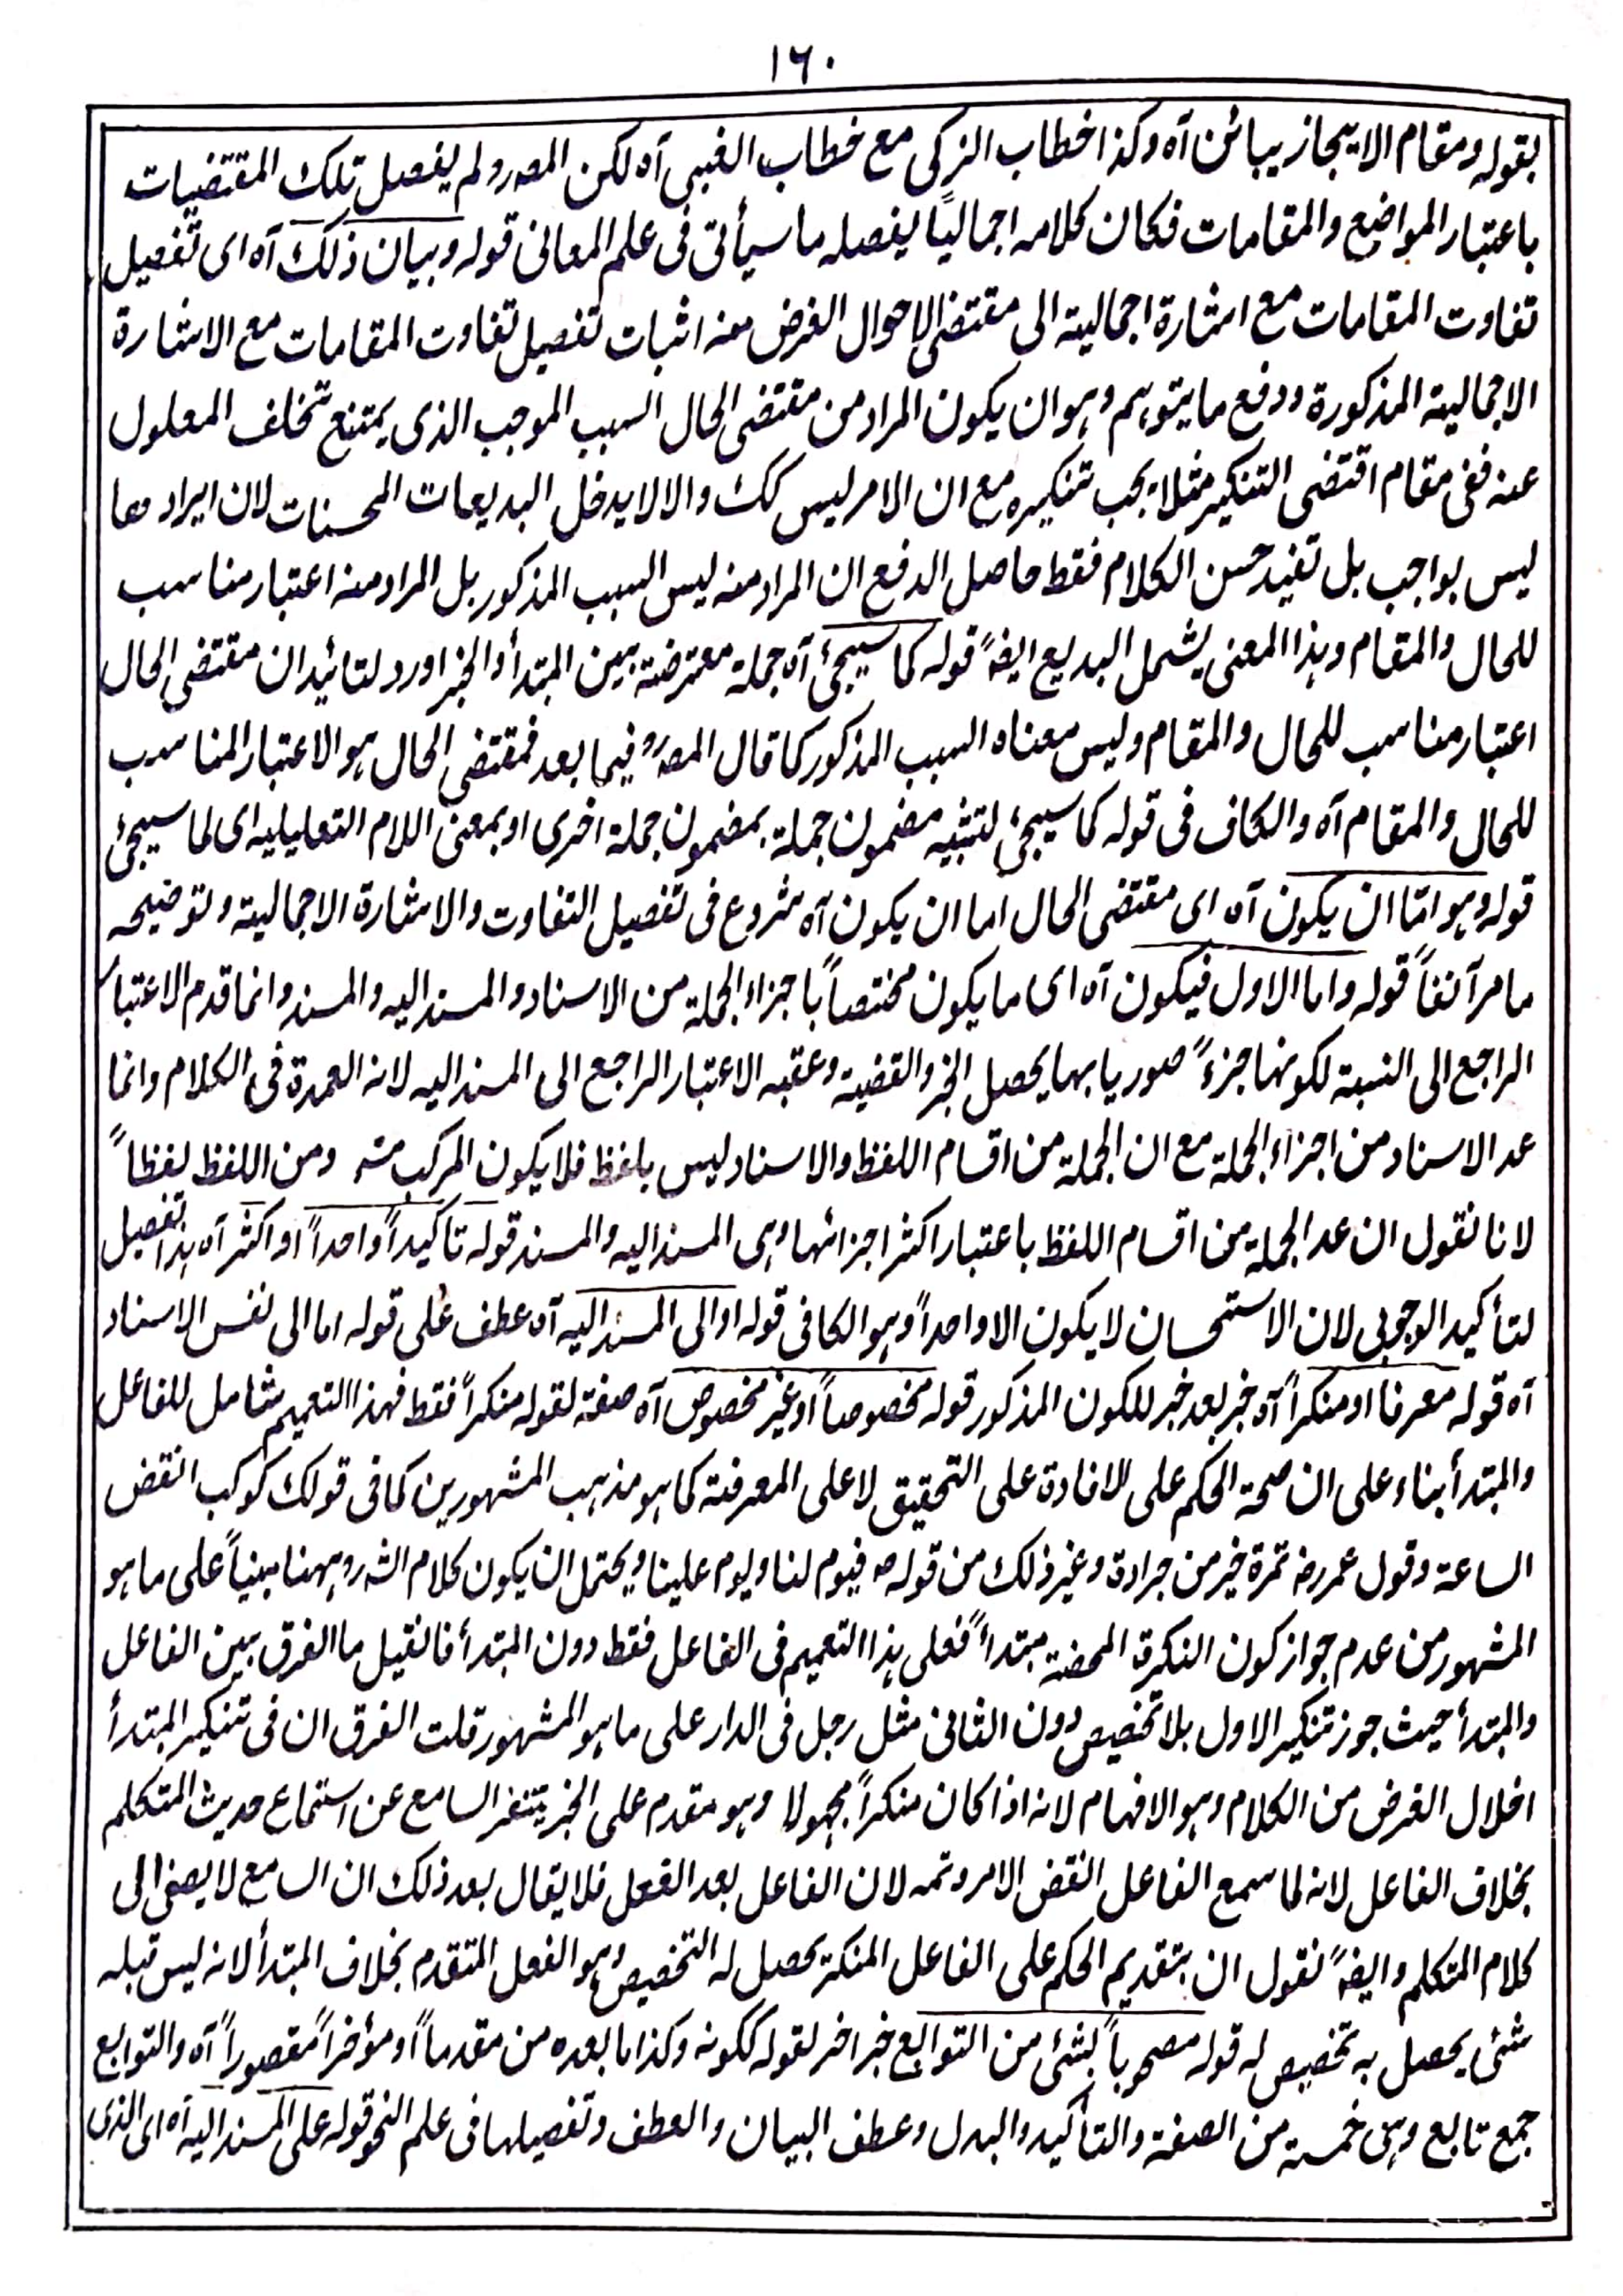 ١٦٠
بقوله ومقام الايجاز يبائن آه وكذا خطاب الزكى مع خطاب الغبى آه لكن المصرو لم يفصل تلك المقتضيات
باعتبار المواضع والمقامات فكان كلامه اجماليًا يفصله ما سيأتى فى علم المعانى قوله وبيان ذلك آه اى تفصيل
تفاوت المقامات مع اشارة اجمالية الى مقتضى الاحوال الغرض منه اثبات تفصيل تفاوت المقامات مع الاشارة
الاجمالية المذكورة ودفع ما يتوهم وهو ان يكون المراد من مقتضى الحال السبب الموجب الذى يمتنع تخلف المعلول
عنه ففى مقام اقتضى التنكير مثلا يجب تنكيره مع ان الامر ليس كك والا لا يدخل البديعات المحسنات لان ايرادها
ليس بواجب بل تفيد حسن الكلام فقط حاصل الدفع ان المراد منه ليس السبب المذكور بل المراد منه اعتبار مناسب
للحال والمقام وهذا المعنى يشمل البديع ايضًا قوله كما سيجئ آه جملة معترضة بين المبتدأ والخبر اورد لتائيد ان مقتضى الحال
اعتبار مناسب للحال والمقام وليس معناه السبب المذكور كما قال المصرو فيما بعد فمقتضى الحال هو الاعتبار المناسب
للحال والمقام آه والكاف فى قوله كما سيجئ لتشبيه مضمون جملة بمضمون جملة اخرى او بمعنى اللام التعليليه اى لما سيجئ
قوله وهو اما ان يكون آه اى مقتضى الحال اما ان يكون آه شروع فى تفصيل التفاوت والاشارة الاجمالية وتوضيحه
ما مر آنفاً قوله واما الاول فيكون آه اى ما يكون مختصاً باجزاء الجملة من الاسناد والمسند اليه والمسند وانما قدم الاعتبار
الراجع الى النسبة لكونها جزءً صوريا بها يحصل الخبر والقضية وعقبه الاعتبار الراجع الى المسند اليه لانه العمدة فى الكلام وانما
عد الاسناد من اجزاء الجملة مع ان الجملة من اقسام اللفظ والاسناد ليس بلفظ فلا يكون المركب منه ومن اللفظ لفظاً
لانا نقول ان عد الجملة من اقسام اللفظ باعتبار اكثر اجزائها وهى المسند اليه والمسند قوله تاكيداً واحداً او اكثر آه هذا تفصيل
لتأكيد الوجوبى لان الاستحسان لا يكون الا واحداً وهو الكافى قوله او الى المسند اليه آه عطف على قوله اما الى نفس الاسناد
آه قوله معرفا او منكراً آه خبر بعد خبر للكون المذكور قوله مخصوصاً او غير مخصوص آه صفة لقوله منكراً فقط فهذا التعميم شامل للفاعل
والمبتدأ بناء على ان صحة الحكم على الافادة على التحقيق لا على المعرفة كما هو مذهب المشهورين كما فى قولك كوكب انقض
الساعة وقول عمر رضـ تمرة خير من جرادة وغير ذلك من قوله صـ فيوم لنا ويوم علينا ويحتمل ان يكون كلام الشرو ههنا مبنياً على ما هو
المشهور من عدم جواز كون النكرة المحضة مبتدأً فعلى هذا التعميم فى الفاعل فقط دون المبتدأ فانقيل ما الفرق بين الفاعل
والمبتدأ حيث جوز تنكير الاول بلا تخصيص دون الثانى مثل رجل فى الدار على ما هو المشهور قلت الفرق ان فى تنكير المبتدأ
اخلال الغرض من الكلام وهو الافهام لانه اذا كان منكراً مجهولا وهو مقدم على الخبر يتنفر السامع عن استماع حديث المتكلم
بخلاف الفاعل لانه لما سمع الفاعل انقض الامر وتمه لان الفاعل بعد الفعل فلا يقال بعد ذلك ان السامع لا يصغى الى
كلام المتكلم وايضًا نقول ان بتقديم الحكم على الفاعل المنكر يحصل له التخصيص وهو الفعل المتقدم بخلاف المبتدأ لانه ليس قبله
شئ يحصل به تخصيص له قوله مصحوباً بشئ من التوابع خبر اخر لقوله ككونه وكذا ما بعده من مقدماً او مؤخراً مقصوراً آه والتوابع
جمع تابع وهى خمسة من الصفة والتأكيد والبدل وعطف البيان والعطف وتفصيلها فى علم النحو قوله على المسند اليه آه اى الذى